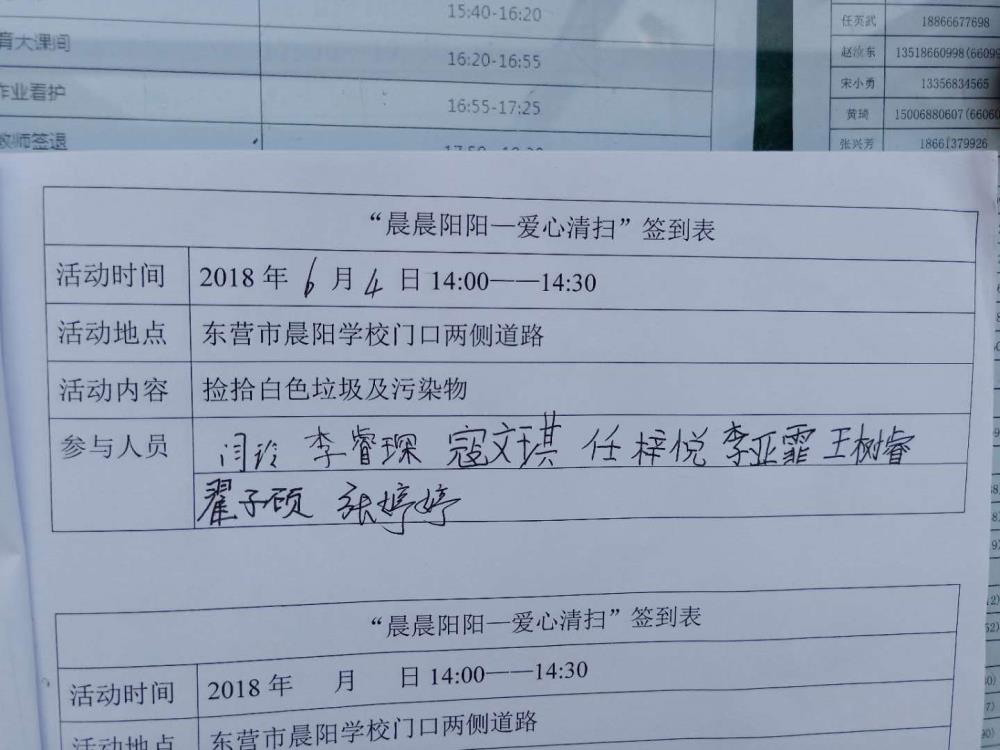 15:40-16:20
育大课间 16:20-16:55
作业看护 16:55-17:25
教师签退
任英武 18866677698
赵汝东 13518660998(66099
宋小勇 13356834565
黄琦 15006880607(66060
张兴芳 18661379926
“晨晨阳阳—爱心清扫”签到表
活动时间 2018 年 6 月 4 日 14:00——14:30
活动地点 东营市晨阳学校门口两侧道路
活动内容 捡拾白色垃圾及污染物
参与人员 闫玲 李睿琛 寇文琪 任梓悦 李亚霏 王树睿
翟子硕 张婷婷
“晨晨阳阳—爱心清扫”签到表
活动时间 2018 年 月 日 14:00——14:30
活动地点 东营市晨阳学校门口两侧道路